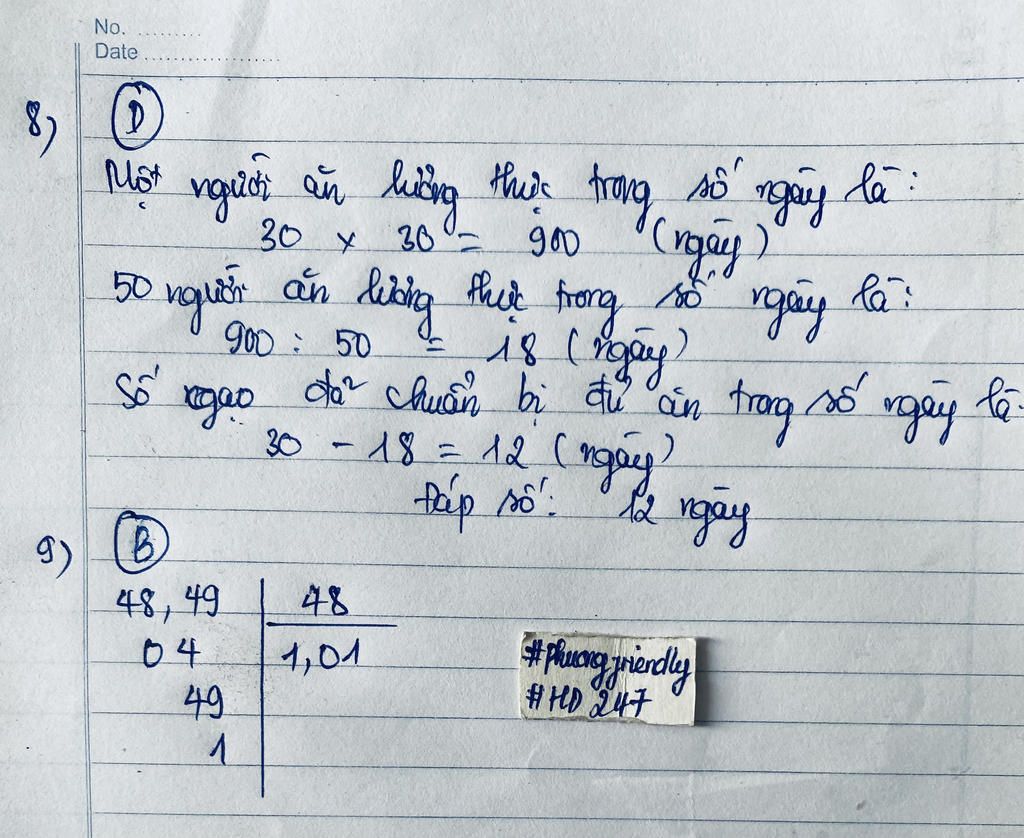 No. .........
Date ...................
8) D
Một người ăn lương thực trong số ngày là:
30 x 30 = 900 (ngày)
50 người ăn lương thực trong số ngày là:
900 : 50 = 18 (ngày)
Số gạo đã chuẩn bị đủ ăn trong số ngày là:
30 - 18 = 12 (ngày)
Đáp số: 12 ngày
9) B
48,49 48
04 1,01
49
1
#phuongfriendly
#HD 247